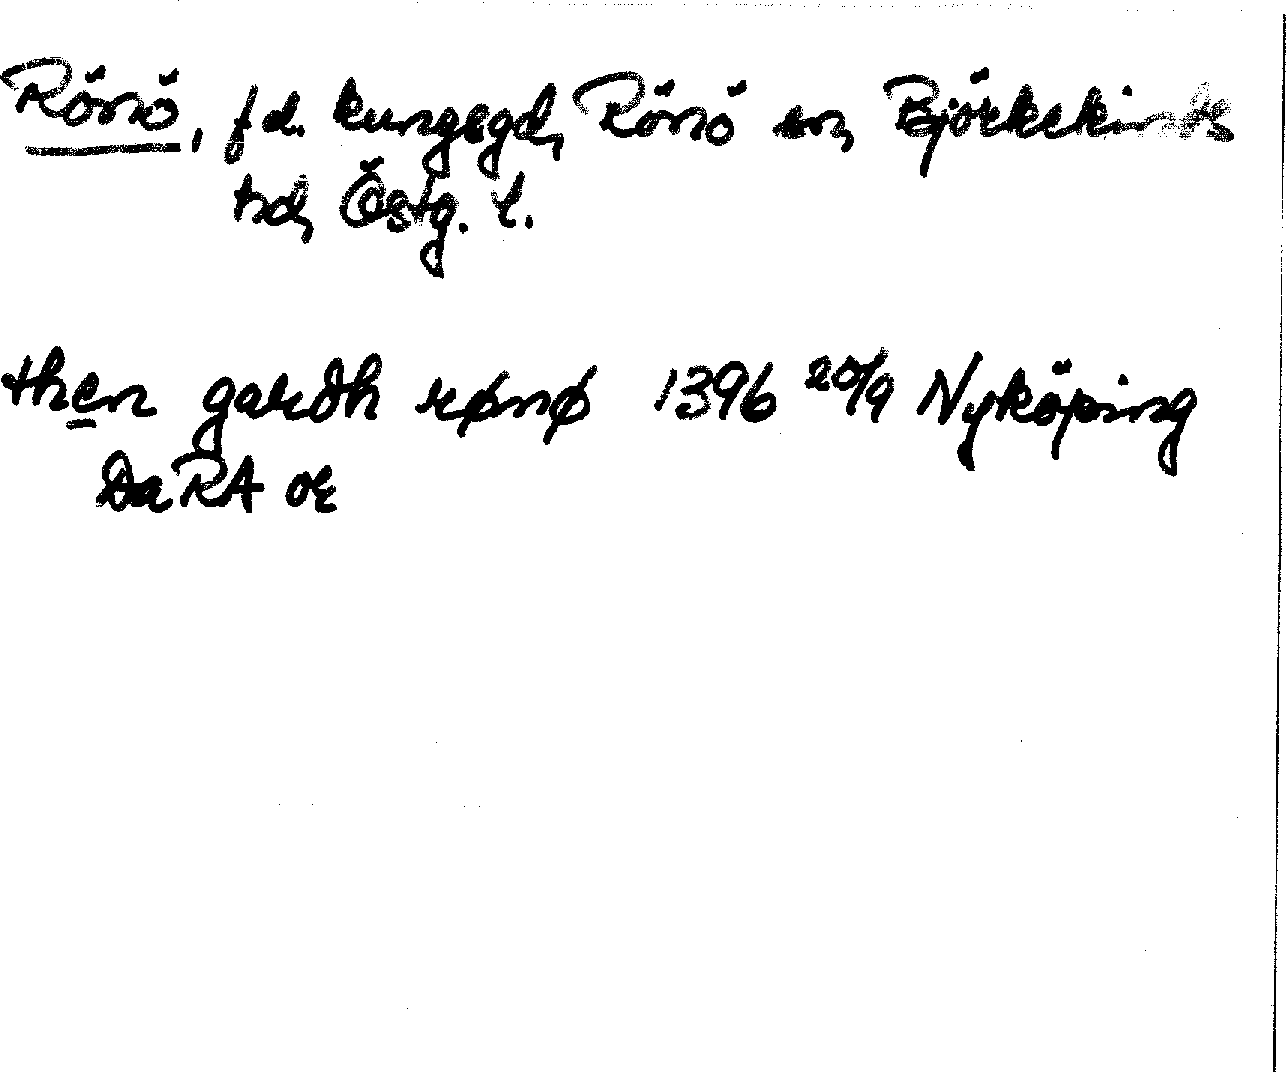 Rönö, f d. kungsgd, Rönö sn, Björkekinds
hd, Östg. l.
then gardh rønø 1396 20/9 Nyköping
DaRA or